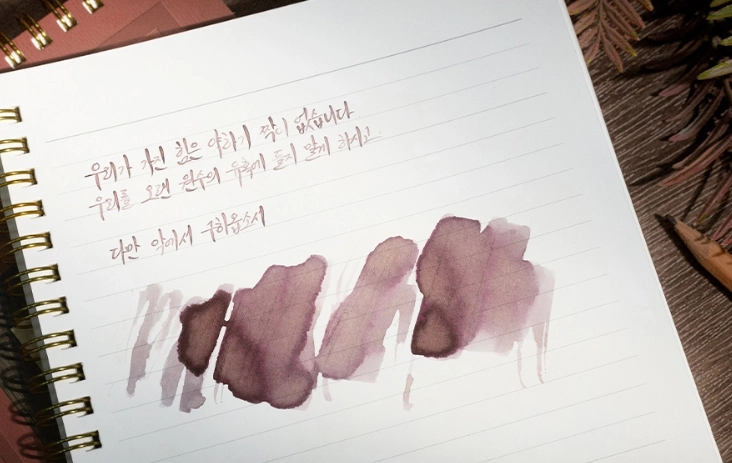 우리가 가진 힘은 야라기 짝이 없습니다
우리를 오랜 원수의 유혹에 들지 말게 하시고
다만 악에서 구하옵소서